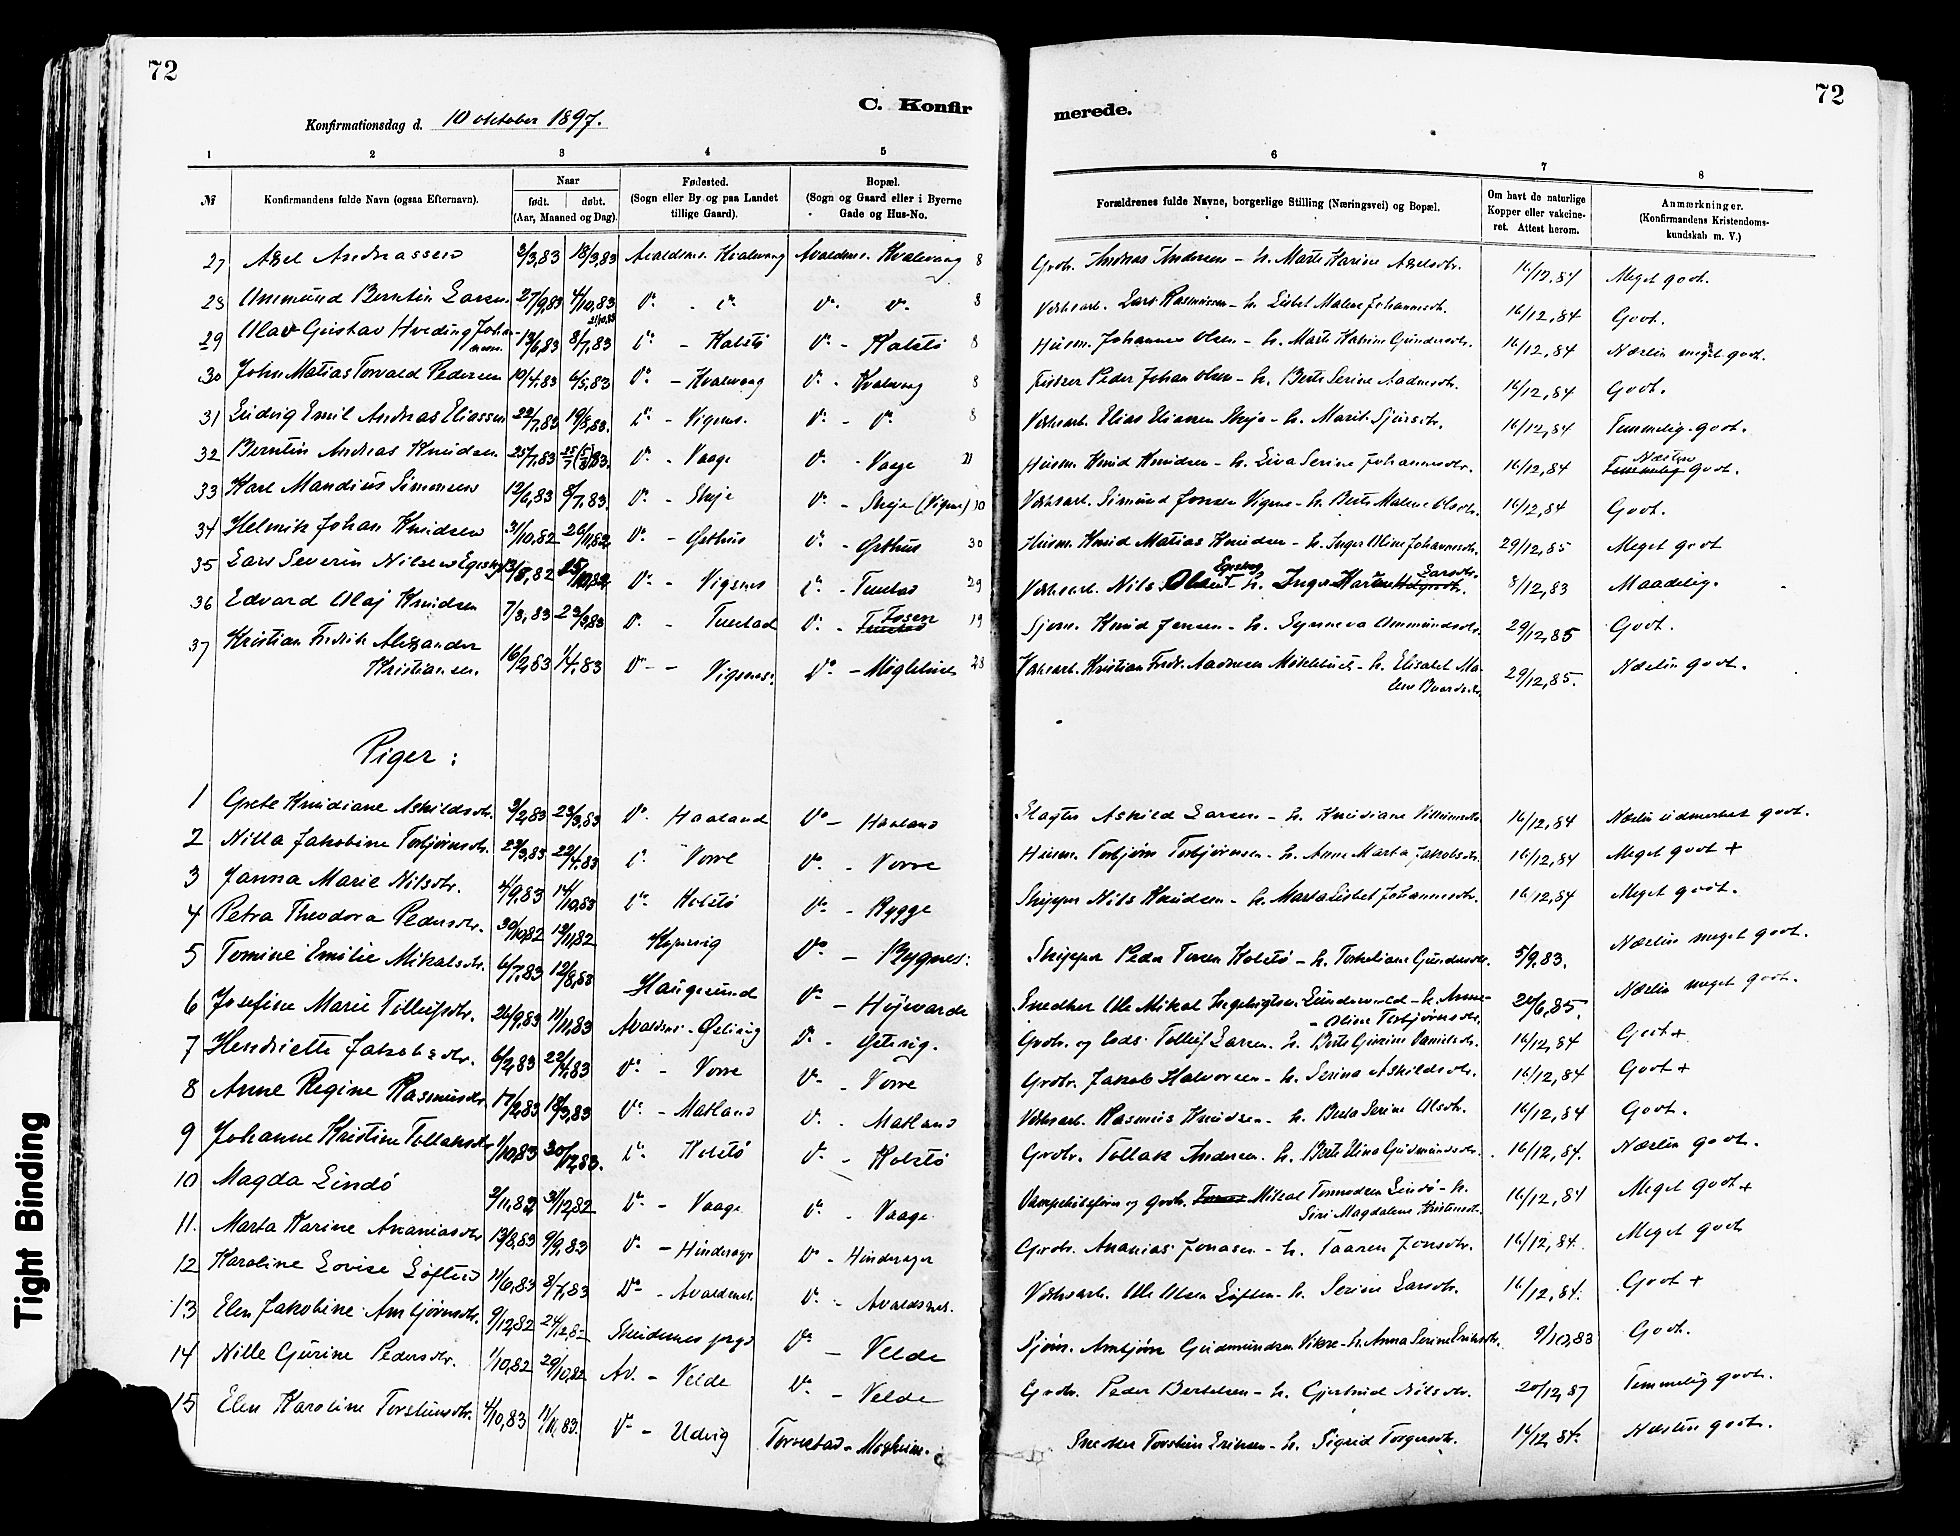 72
72
C. Konfir
merede.
Konfirmationsdag d. 10 oktober 1897.
1 2 3 4 5 6 7 8
№
Konfirmandens fulde Navn (ogsaa Efternavn).
Naar
født. døbt.
(Aar, Maaned og Dag).
Fødested.
(Sogn eller By og paa Landet
tillige Gaard).
Bopæl.
(Sogn og Gaard eller i Byerne
Gade og Hus-No.
Forældrenes fulde Navne, borgerlige Stilling (Næringsvei) og Bopæl.
Om havt de naturlige
Kopper eller vakcine-
ret. Attest herom.
Anmærkninger.
(Konfirmandens Kristendoms-
kundskab m. V.)
27 Axel Andreassen 2/3,83 18/3,83 Avaldsnes. Kvalevaag Avaldsnes. Kvalevaag 8 Grbr. Andreas Andersen - h. Marte Karine Axelsdtr. 16/12,84 Meget godt.
28 Ommund Berntin Larsen 27/9,83 4/10,83 21/10,83 Do. Do. Do. Do. 8 Verksarb. Lars Rasmussen - h. Lisbet Malene Johannesdtr. 16/12,84 Godt.
29 Olav Gustav Hveding Johan-
nesen. 13/6,83 8/7,83 Do. - Kolstø Do. - Kolstø 8 Husm. Johannes Olsen - h. Marte Katrine Gundersdtr. 16/12,84 Næsten meget godt.
30 John Matias Torvald Pedersen 10/4,83 6/5,83 Do. - Kvalevaag Do. - Kvalevaag 8 Fisker Peder Johan Olsen - h. Berte Serine Aadnesdtr. 16/12,84 Godt.
31 Ludvig Emil Andreas Eliassen 22/7,83 19/8,83. Do. - Vigsnes. Do. - Do. 8 Verksarb. Elias Eliassen Skeje - h. Marit Sjursdtr. 16/12,84 Temmelig godt.
32 Berntin Andreas Knudsen 25/7,83 Do. - Vaage Do. - Vaage 21 Husm. Knud Knudsen - h. Liva Serine Johannesdtr. 16/12,84 Næsten
Temmelig godt.
33 Karl Mandius Simonsen 12/6,83 8/7,83. Do. - Skeje Do. - Skeje (Vigsnes) 30 Verksarb. Simund Jonsen Vigsnes - h. Berte Malene Olsdtr. 16/12,84 Godt.
34 Helmik Johan Knudsen 31/10,82 26/11,82 Do. - Østhus Do. - Østhus 30 Husm. Knud Matias Knudsen - h. Inger Oline Johannesdtr. 29/12,85 Meget godt
35 Lars Severin Nilsen 13/8,82 Do. - Vigsnes Do. - Tuestad 29 Verksarb. Nils Olsen - h. Inger Karine Larsdtr. 8/12,83 Maadelig.
36 Edvard Olaj Knudsen 7/3,83 23/3,83 Do. - Tuestad Do. - Fosen
Tuestad 19 Sjøm. Knud Jensen - h. Synneva Ommundsdtr. 29/12,85 Godt.
37 Kristian Fredrik Alexander
Kristiansen. 16/2,83 1/4,83 Do. - Vigsnes. Do. - Miglebust 28 Verksarb. Kristian Fredr. Aadnesen Møklebust - h. Elisabet Ma-
lene 29/12,85. Næsten godt.
Piger:
1 Grete Knudiane Askildsdtr. 3/2,83 23/3,83 Do. Haaland Do. - Haaland Slagter Askild Larsen - h. Knudiane 16/12,84 Næsten udmerket godt.
2 Nilla Jakobine Torbjørnsdtr. 29/3,83 22/4,83 Do. Vorre Do. - Vorre Husm. Torbjørn Torbjørnsen - h. Anne Marta Jakobsdtr. 16/12,84 Meget godt +
3 Janna Marie Nilsdtr. 4/9,83 14/10,83 Do. Kolstø Do. - Rygge Skipper Nils Knudsen - h. Marta Lisbet Johannesdtr. 16/12,84 Meget godt.
4 Petra Theodora Pedersdtr. 30/10,82 12/11,82 Kopervig Do. - Bygnes. Skipper Peder Torsen Kolstø - h. Torkeliane Gundersdtr. 5/9,83. Næsten meget godt.
5 Tomine Emilie Mikalsdtr. 6/7,83 12/8,83 Haugesund Do. - Højevarde Snedker Ole Mikal - h. Anne
- Oline Torbjørnsdtr. 20/6,85. Næsten meget godt.
6 Josefine Marie Tollefsdtr. 24/9,83 11/11,83 Avaldsnes - Østevig Do. - Østevig. Grbr. og Tollef Larsen - h. Berte Gurine Danielsdtr. 16/12,84 Godt +
7 Henriette Jakobsdtr. 6/2,83 22/4,83 Do. - Vorre Do. - Vorre Grbr. Jakob Halvorsen - h. Serina Askildsdtr. 16/12,84 Godt +
8 Anne Regine Rasmusdtr. 17/2,83 18/3,83 Do. - Matland Do. - Matland Verksarb. Rasmus Knudsen - h. Berta Serine Olsdtr. 16/12,84 Godt.
9 Johanne Kristine Tollaksdtr. 1/10,83 30/12,83. Do. Kolstø Do. - Kolstø Grbr. Tollak Andersen - h. Berte Elina Gudmundsdtr. 16/12,84. Næsten godt.
10 Magda Lindø 2/11,82 31/12,82 Do. - Vaage Do. - Vaage og Grbr. Mikal Tønnesen Lindø - h.
Siri Magdalene Kristensdtr. 16/12,84 Meget godt +
11. Marta Karine Ananiasdtr. 13/8,83 9/9,83 Do. - Hinderager Do. - Hinderager Grbr. Ananias Jonasen - h. Taaren Jonsdtr. 16/12,84. Meget godt
12 Karoline Lovise Løften 11/6,83 8/7,83 Do. - Avaldsnes. Do. - Avaldsnes. Verksarb. Ole Olsen Løften - h. Serine Larsdtr. 16/12,84. Godt +
13 Elen Jakobine Arnbjørnsdtr. 9/12,82 24/12,82 Skudesnes prgd Do. - Velde Sjøm. Arnbjørn Gudmundsen - h. Anna Serine Eriksdtr. 9/10,83 Godt.
14 Nille Gurine Pedersdtr. 1/10,82 29/10,82 Av. - Velde Do. - Velde Grbr. Peder Bertelsen - h. Gjertrud Nilsdtr. 20/12,87 Temmelig godt.
15 Elen Karoline Torstensdtr. 4/10,83 11/11,83. Do. - Udvig Torvestad - Snedker Torsten Eriksen - h. Sigrid Torgersdtr. 16/12,84. Næsten godt.
Tight Binding